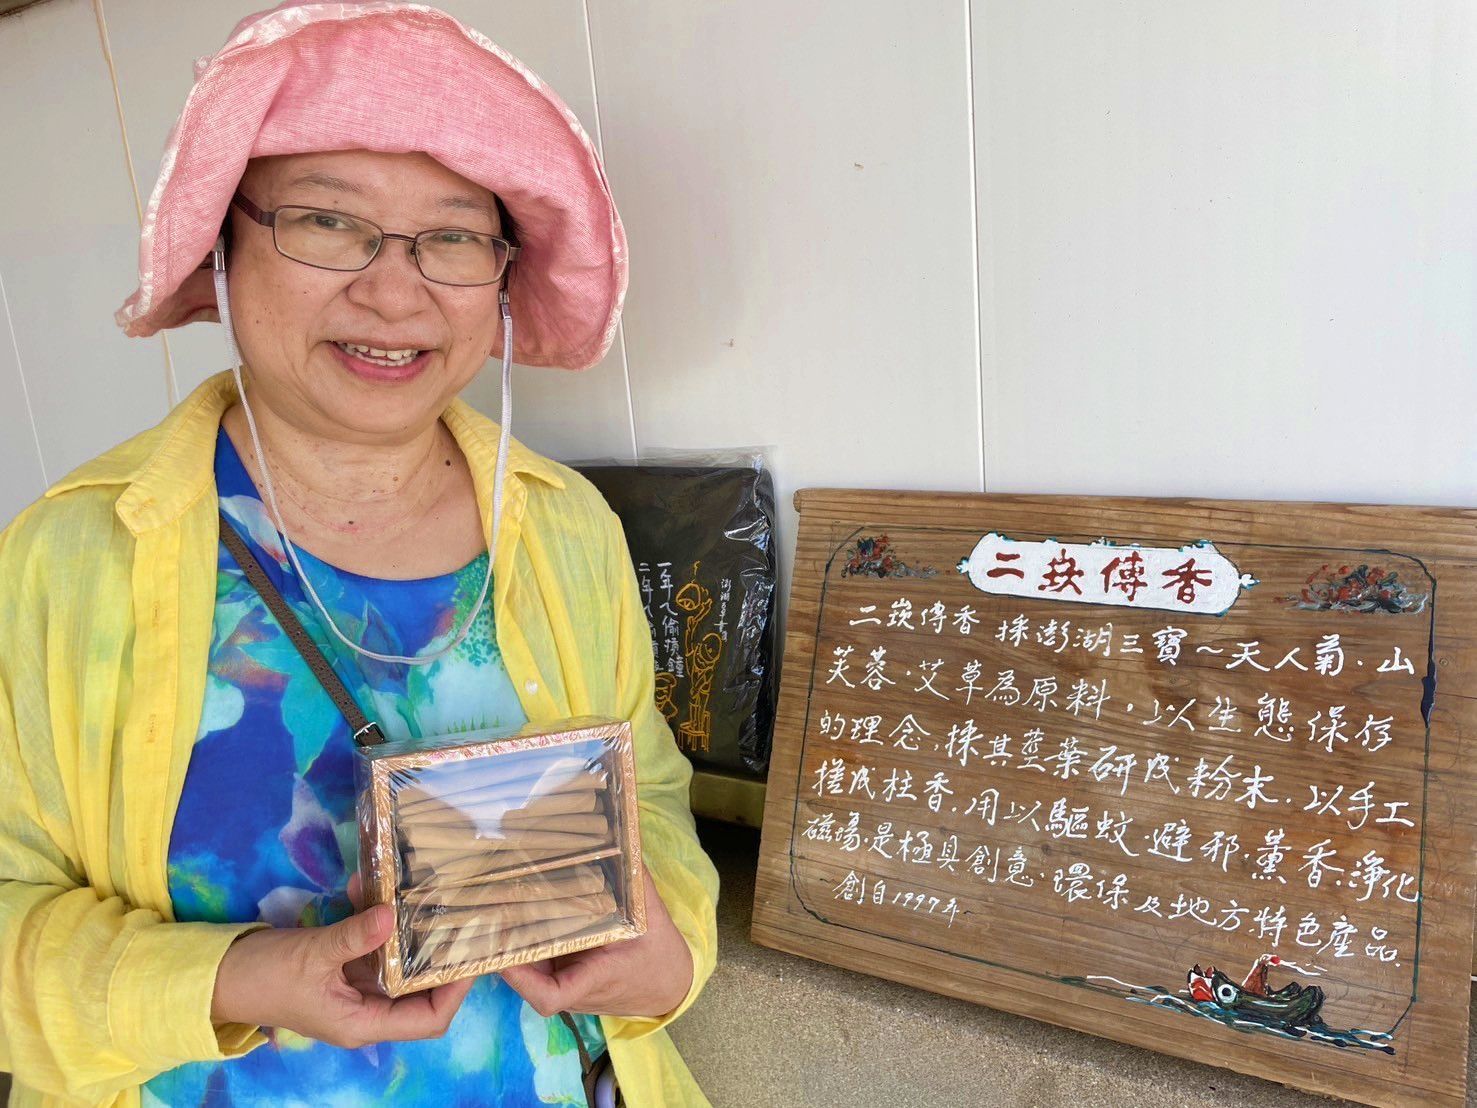 二崁傳香
二崁傳香 採澎湖三寶~天人菊．山
芙蓉．艾草為原料，以生態保存
的理念，採其莖葉研成粉末．以手工
搓成柱香．用以驅蚊．避邪．薰香．淨化
磁場．是極具創意．環保及地方特色產品．
創自1997年
一年人偷摃鐘